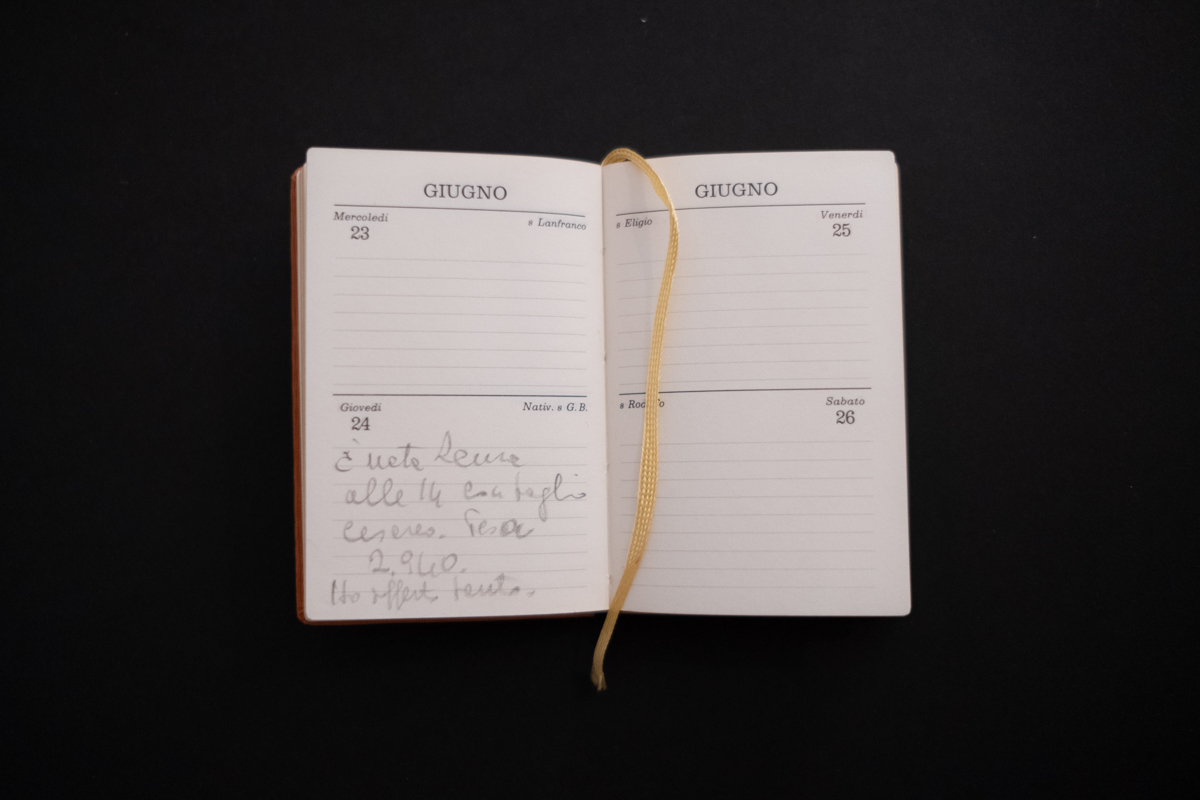 GIUGNO
Mercoledì
s Lanfranco
23
Giovedì
Nativ. s G.B.
24
È nata Laura
alle 14 con taglio
cesareo. Pesa
2.940.
Ho sofferto tanto.
GIUGNO
s Eligio
Venerdì
25
s Rodolfo
Sabato
26